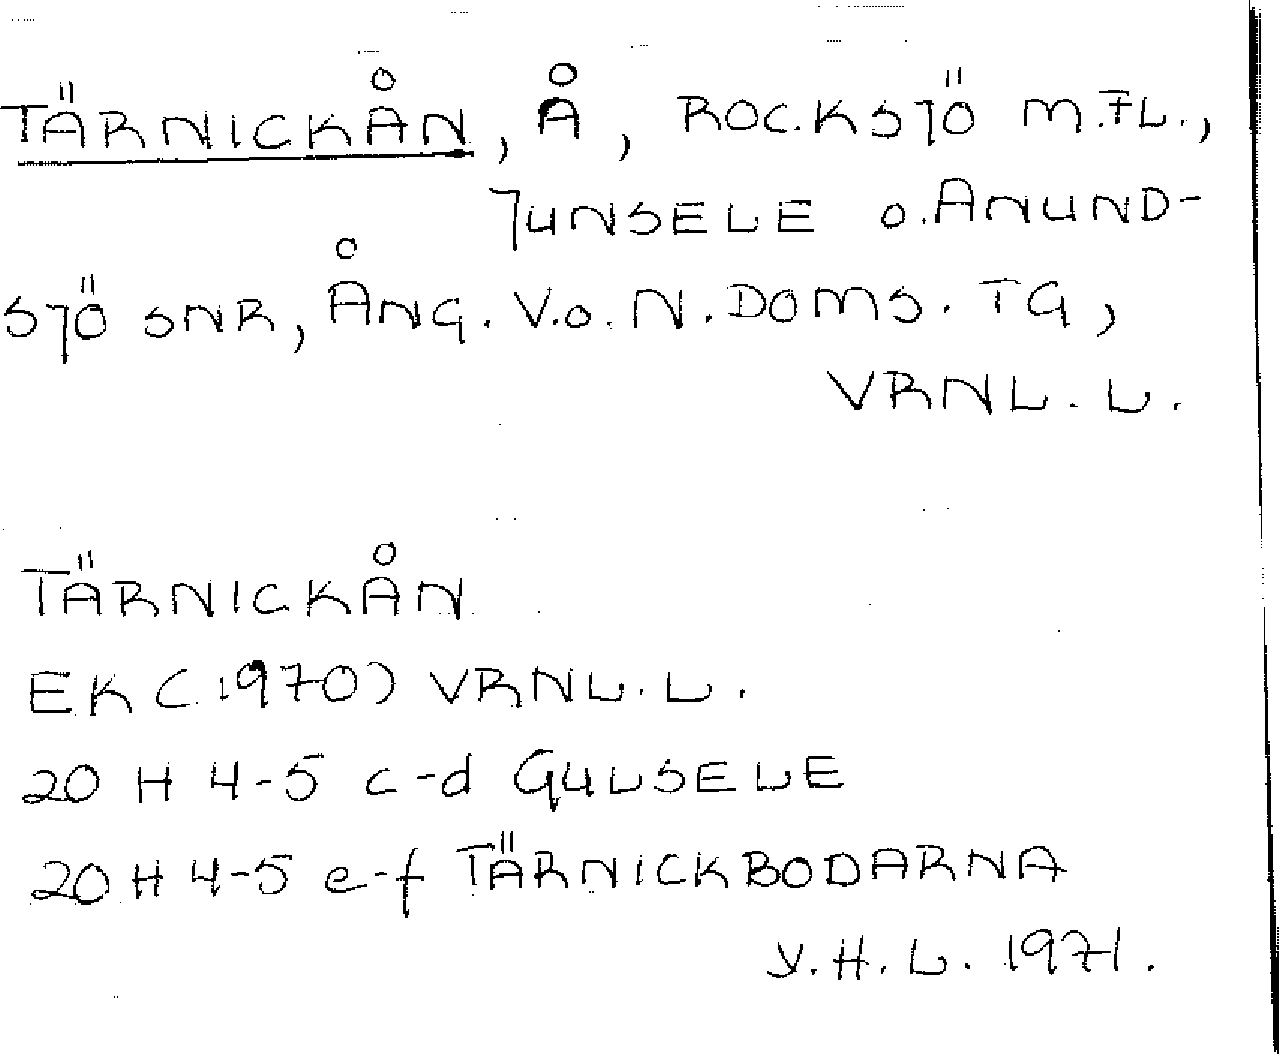 TÄRNICKÅN, Å, ROCKSJÖ M.FL.,
JUNSELE o. ANUND-
SJÖ SNR, ÅNG. V.o.N. DOMS. TG,
VRNL. L.
TÄRNICKÅN
EK (1970) VRNL. L.
20 H 4-5 c-d GULSELE
20 H 4-5 e-f TÄRNICKBODARNA
Y.H.L. 1971.